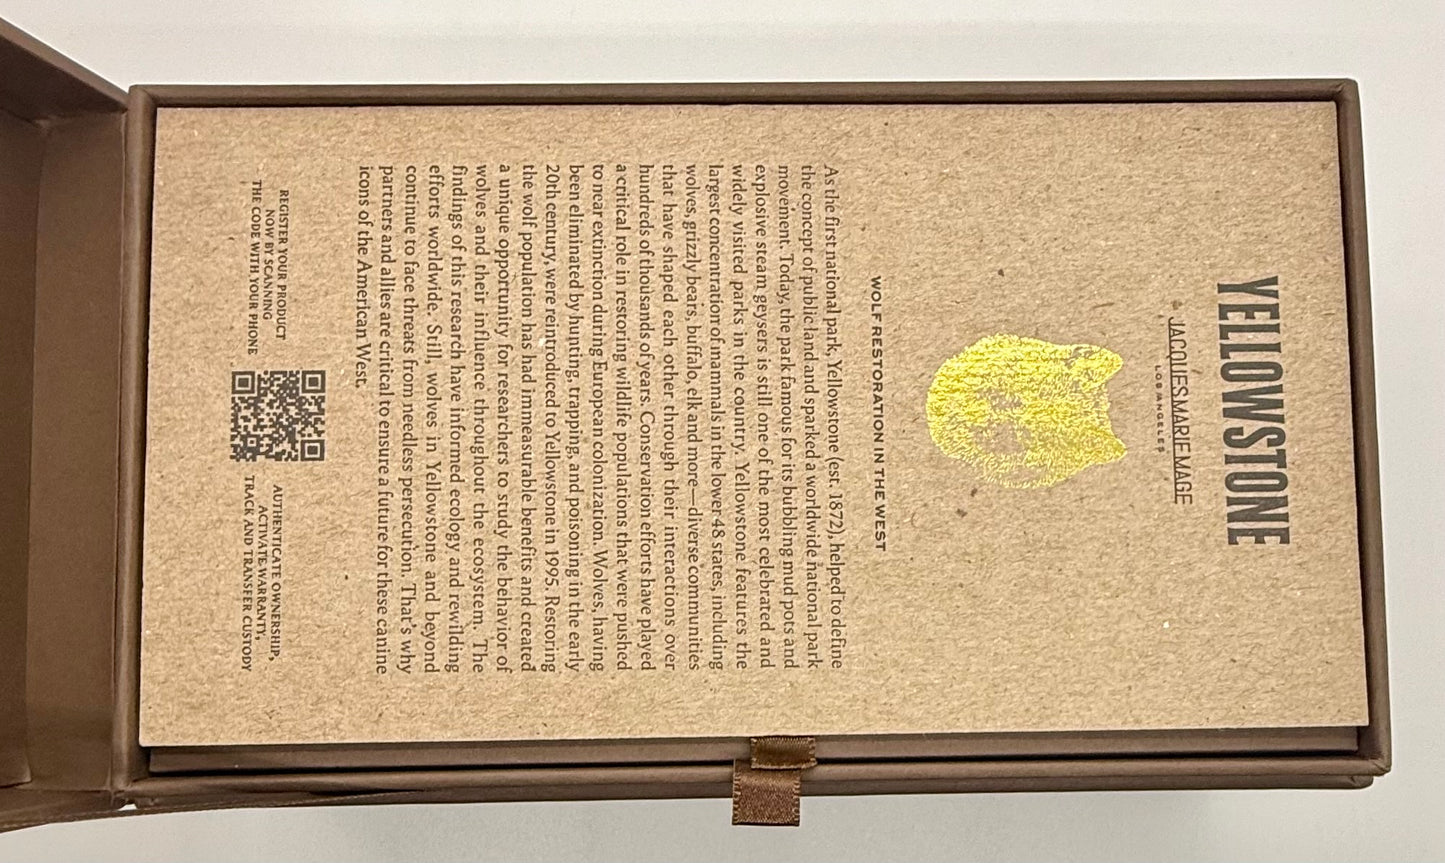 YELLOWSTONE
JACQUES MARIE MAGE
LOS ANGELES
WOLF RESTORATION IN THE WEST
As the first national park, Yellowstone (est. 1872), helped to define
the concept of public land and sparked a worldwide national park
movement. Today, the park famous for its bubbling mud pots and
explosive steam geysers is still one of the most celebrated and
widely visited parks in the country. Yellowstone features the
largest concentration of mammals in the lower 48 states, including
wolves, grizzly bears, buffalo, elk and more—diverse communities
that have shaped each other through their interactions over
hundreds of thousands of years. Conservation efforts have played
a critical role in restoring wildlife populations that were pushed
to near extinction during European colonization. Wolves, having
been eliminated by hunting, trapping, and poisoning in the early
20th century, were reintroduced to Yellowstone in 1995. Restoring
the wolf population has had immeasurable benefits and created
a unique opportunity for researchers to study the behavior of
wolves and their influence throughout the ecosystem. The
findings of this research have informed ecology and rewilding
efforts worldwide. Still, wolves in Yellowstone and beyond
continue to face threats from needless persecution. That's why
partners and allies are critical to ensure a future for these canine
icons of the American West.
REGISTER YOUR PRODUCT
NOW BY SCANNING
THE CODE WITH YOUR PHONE
AUTHENTICATE OWNERSHIP,
ACTIVATE WARRANTY,
TRACK AND TRANSFER CUSTODY